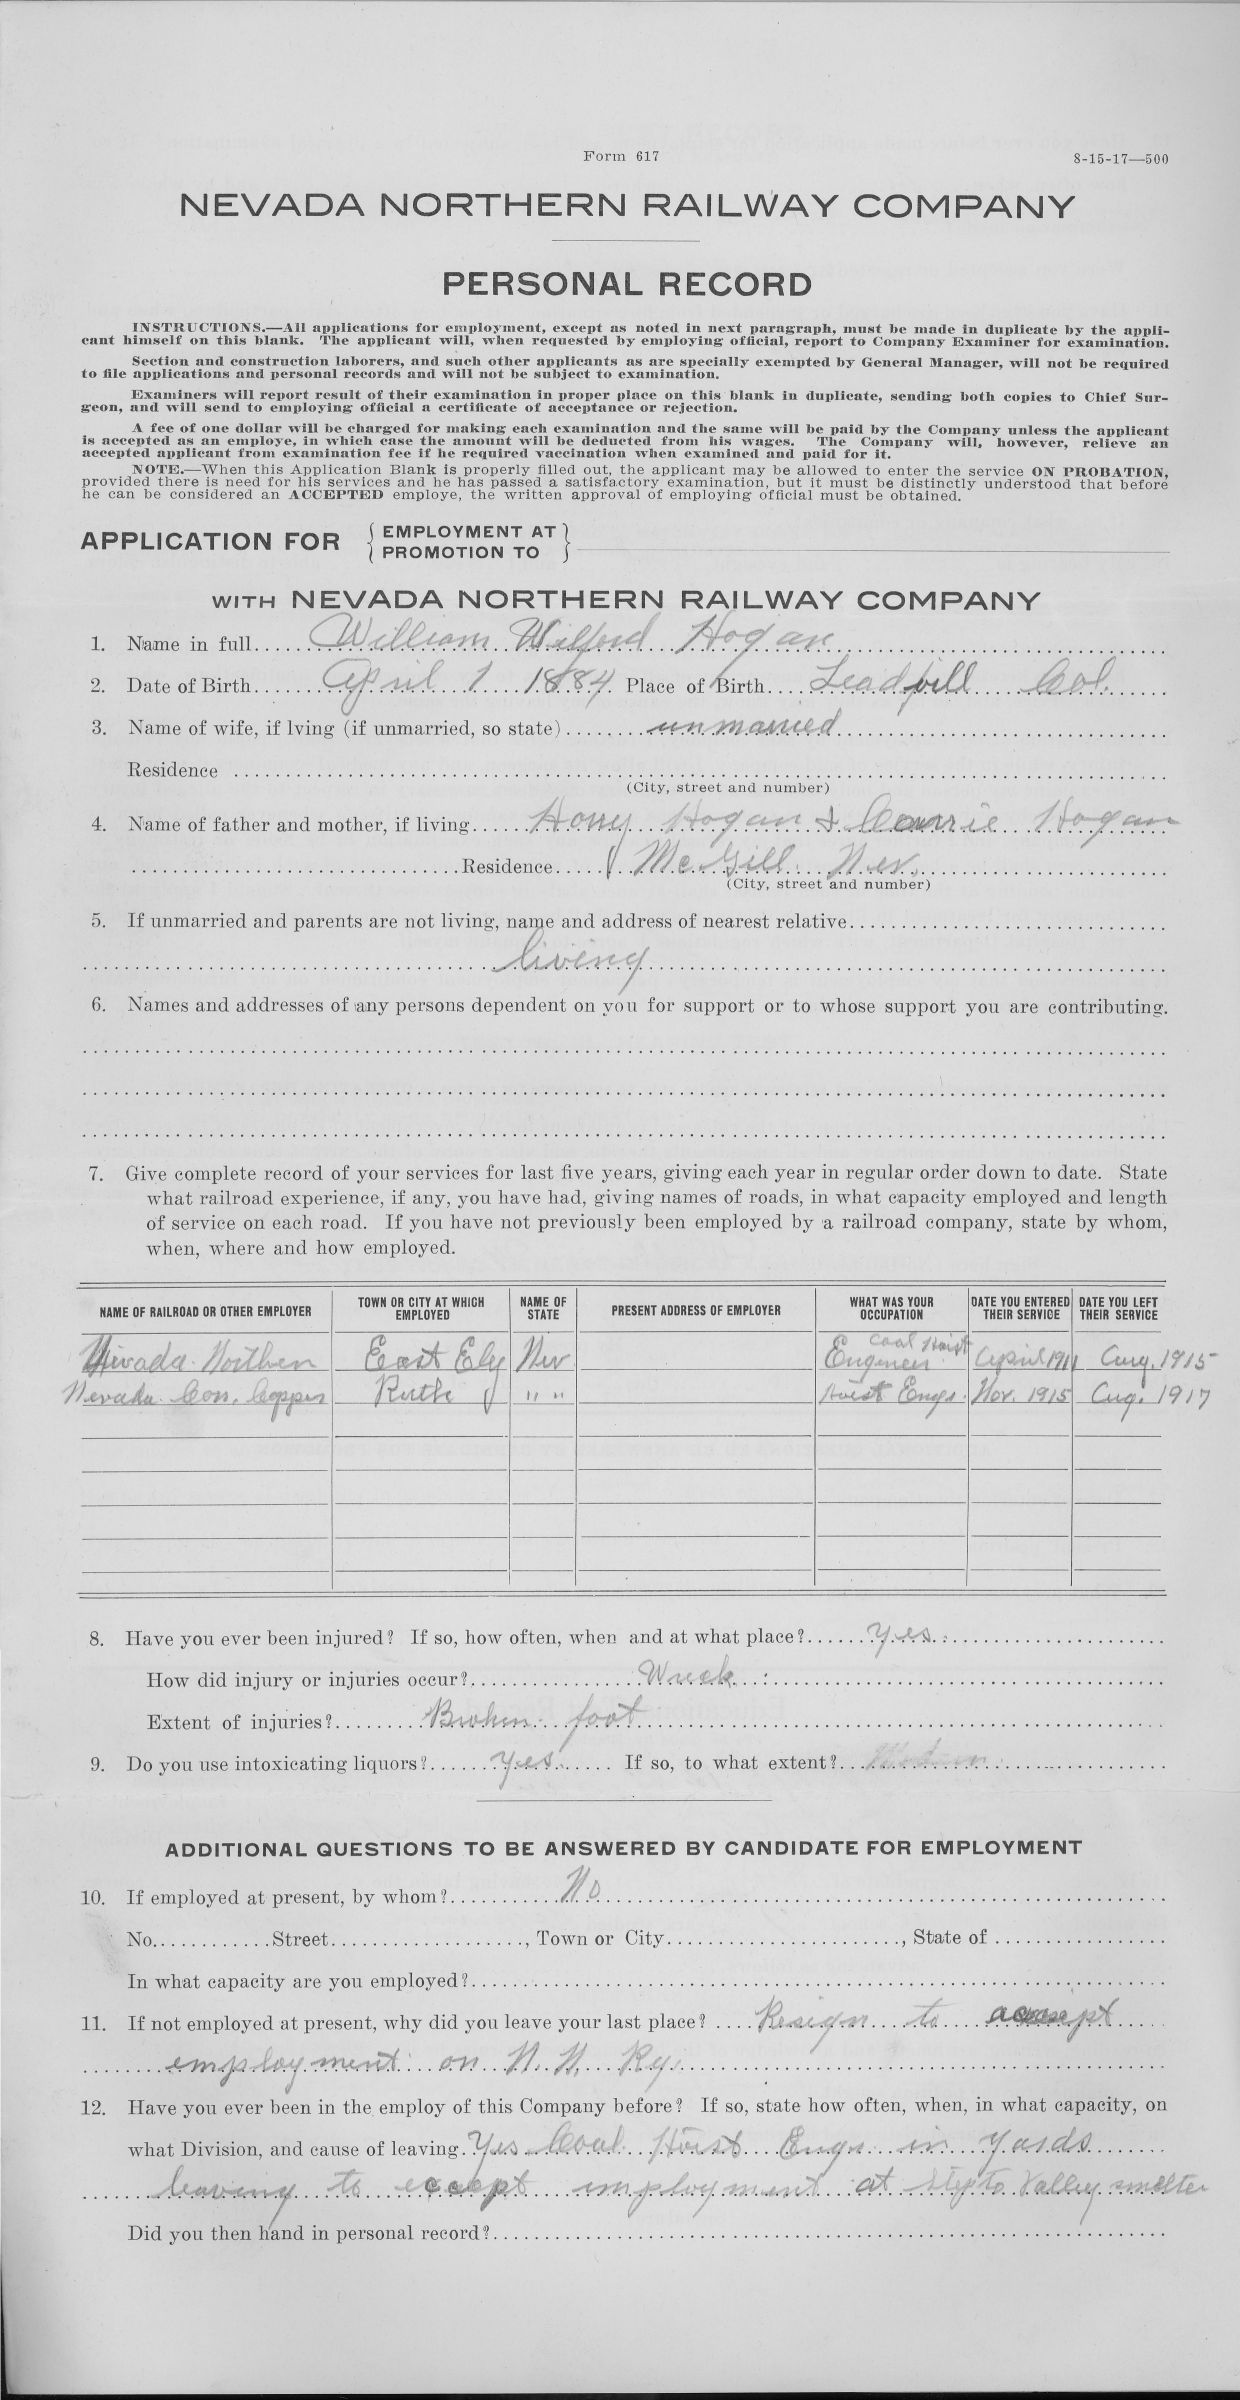 Form 617
8-15-17—500
NEVADA NORTHERN RAILWAY COMPANY
PERSONAL RECORD
INSTRUCTIONS.—All applications for employment, except as noted in next paragraph, must be made in duplicate by the appli-
cant himself on this blank. The applicant will, when requested by employing official, report to Company Examiner for examination.
Section and construction laborers, and such other applicants as are specially exempted by General Manager, will not be required
to file applications and personal records and will not be subject to examination.
Examiners will report result of their examination in proper place on this blank in duplicate, sending both copies to Chief Sur-
geon, and will send to employing official a certificate of acceptance or rejection.
A fee of one dollar will be charged for making each examination and the same will be paid by the Company unless the applicant
is accepted as an employe, in which case the amount will be deducted from his wages. The Company will, however, relieve an
accepted applicant from examination fee if he required vaccination when examined and paid for it.
NOTE.—When this Application Blank is properly filled out, the applicant may be allowed to enter the service ON PROBATION,
provided there is need for his services and he has passed a satisfactory examination, but it must be distinctly understood that before
he can be considered an ACCEPTED employe, the written approval of employing official must be obtained.
APPLICATION FOR { EMPLOYMENT AT }
{ PROMOTION TO }
WITH NEVADA NORTHERN RAILWAY COMPANY
1. Name in full William Wilford Hogan
2. Date of Birth April 1 1884 Place of Birth Leadvill Col.
3. Name of wife, if lving (if unmarried, so state) unmarried
Residence
(City, street and number)
4. Name of father and mother, if living Harry Hogan & Carrie Hogan
Residence McGill Nev.
(City, street and number)
5. If unmarried and parents are not living, name and address of nearest relative
living
6. Names and addresses of any persons dependent on you for support or to whose support you are contributing.
7. Give complete record of your services for last five years, giving each year in regular order down to date. State
what railroad experience, if any, you have had, giving names of roads, in what capacity employed and length
of service on each road. If you have not previously been employed by a railroad company, state by whom,
when, where and how employed.
NAME OF RAILROAD OR OTHER EMPLOYER TOWN OR CITY AT WHICH EMPLOYED NAME OF STATE PRESENT ADDRESS OF EMPLOYER WHAT WAS YOUR OCCUPATION DATE YOU ENTERED THEIR SERVICE DATE YOU LEFT THEIR SERVICE
Nevada Northen East Ely Nev Coal Hoist Engineer April 1911 Aug. 1915
Nevada Con. Copper Ruth " " Hoist Engr. Nov. 1915 Aug. 1917
8. Have you ever been injured? If so, how often, when and at what place? Yes
How did injury or injuries occur? Wreck
Extent of injuries? Broken foot
9. Do you use intoxicating liquors? Yes If so, to what extent?
ADDITIONAL QUESTIONS TO BE ANSWERED BY CANDIDATE FOR EMPLOYMENT
10. If employed at present, by whom? No
No. Street , Town or City , State of
In what capacity are you employed?
11. If not employed at present, why did you leave your last place? Resign to accept
employment on N. N. Ry.
12. Have you ever been in the employ of this Company before? If so, state how often, when, in what capacity, on
what Division, and cause of leaving. Yes Coal Hoist Engr in yards
leaving to except employment at Stepto Valley smelter
Did you then hand in personal record?